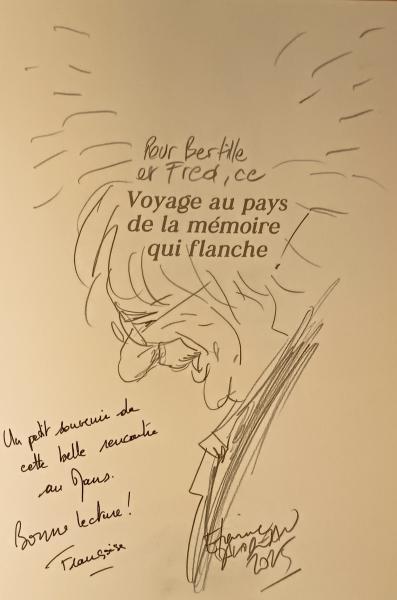 Pour Bertille
et Fred, ce
Voyage au pays
de la mémoire
qui flanche
Un petit souvenir de
cette belle rencontre
au Mans.
Bonne lecture!
Françoise
2025